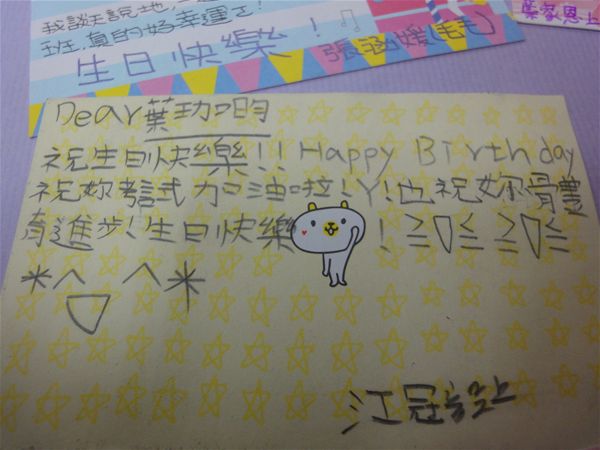 我談天說地,
班,真的好幸運ㄛ!
生日快樂!
張涵媛(毛毛)
葉家恩上
Dear葉珈昀
祝生日快樂!! Happy Birthday
祝妳考試加油啦!Y!也祝妳體
育進步!生日快樂!≧▽≦ ≧▽≦
*^▽^*
江冠 上